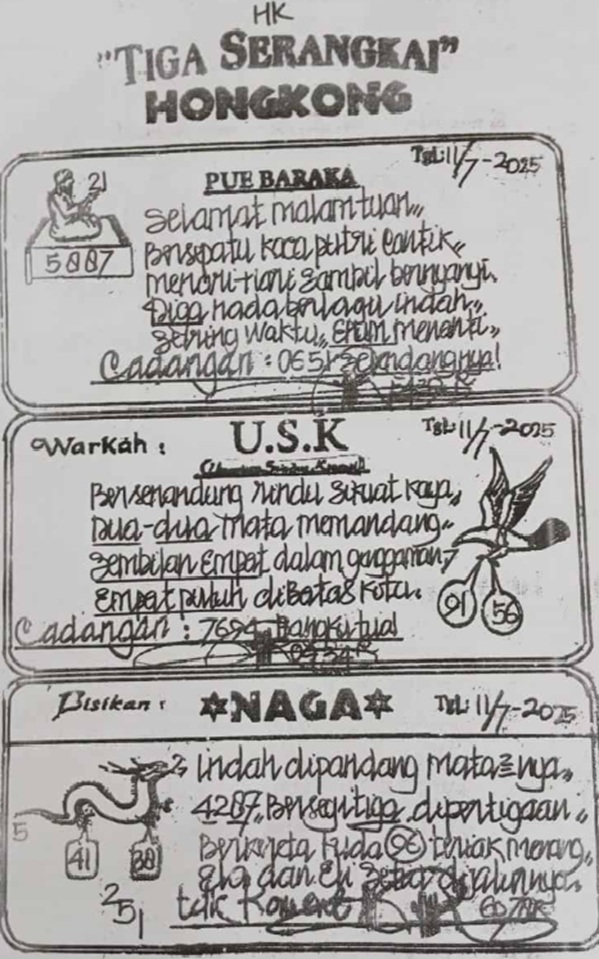 HK
"TIGA SERANGKAI"
HONGKONG
PUE BARAKA
Tgl: 11/7-2025
21
5887
Selamat malam tuan,,
Bersepatu kaca putri cantik,,
menari-tiari sambil bernyanyi.
nada berlagu indah,,
Seiring waktu,, menanti,,
Cadangan : 065, selendangnya!
Warkah :
U.S.K
Tgl: 11/7-2025
Bersenandung rindu sikuat kaya,,
Dua-dua mata memandang,,
Sembilan Empat dalam genggaman,,
Empat puluh dibatas kota.
91
56
Cadangan : 7694
Bisikan :
NAGA
Tgl: 11/7-2025
Indah dipandang mata nya,,
4287,, Bersegitiga dipertigaan,,
Berkereta kuda 96 teriak menang,,
5
41
38
251